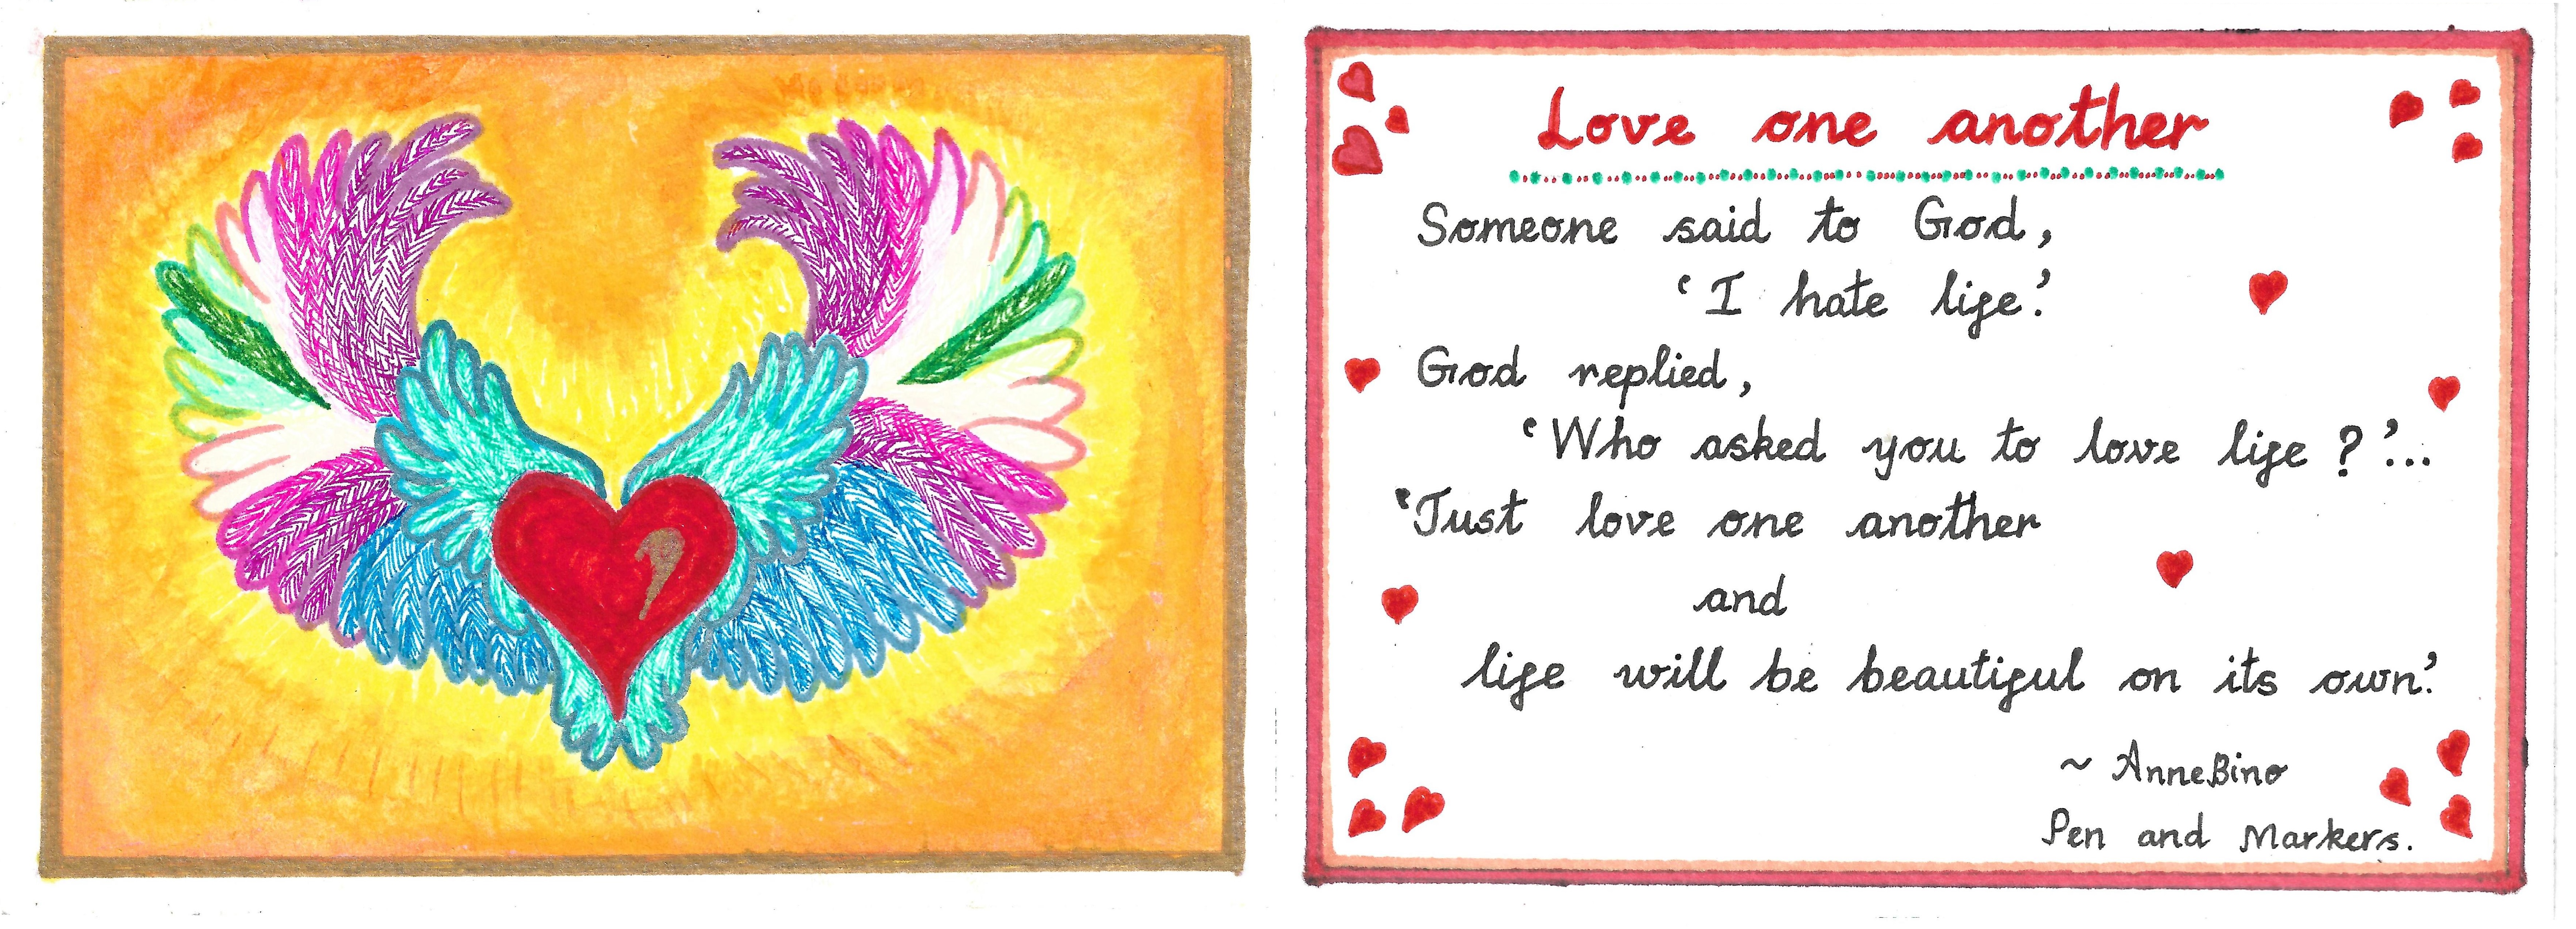 Love one another
Someone said to God,
'I hate life.'
God replied,
'Who asked you to love life ?'...
'Just love one another
and
life will be beautiful on its own.'
~ AnneBino
Pen and Markers.